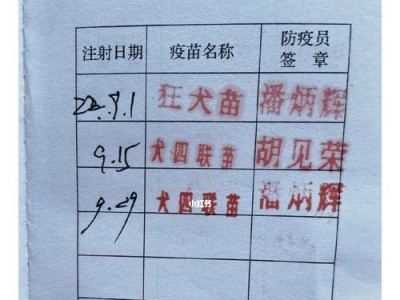 注射日期 疫苗名称 防疫员签章
22.9.1 狂犬苗 潘炳辉
9.15 犬四联苗 胡见荣
9.29 犬四联苗 潘炳辉
小红书